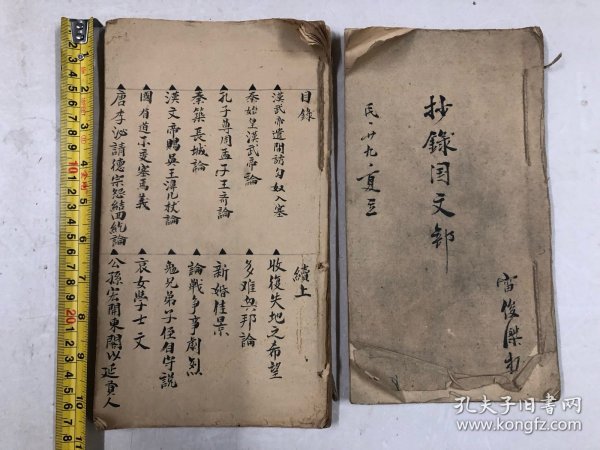 目錄
漢武帝遣間誘匈奴入塞
秦始皇漢武帝論
孔子尊周孟子王齊論
秦築長城論
漢文帝賜吳王濞几杖論
國有道不變塞焉義
唐李泌請德宗結回紇論
續上
收復失地之希望
多难興邦論
新婚佳景
論戰爭事劇烈
勉兄弟子侄自守説
哀女學士文
公孫宏開東閣以延賢人
抄錄国文部
民·廿九·夏立
雷俊傑
孔夫子旧书网
www.kongfz.com